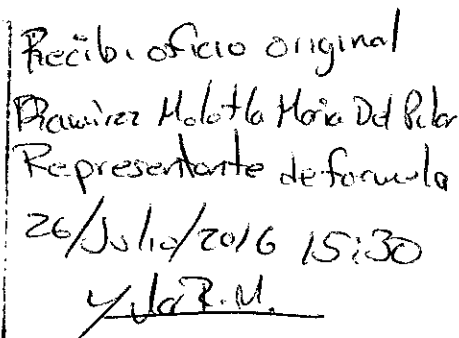 Recibi oficio original
Ramirez Molotla Maria Del Pilar
Representante de formula
26/Julio/2016 15:30
R.M.